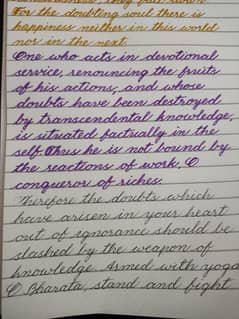 they fall down
For the doubting soul there is
happiness neither in this world
nor in the next.
One who acts in devotional
service, renouncing the fruits
of his actions, and whose
doubts have been destroyed
by transcendental knowledge,
is situated factually in the
self. Thus he is not bound by
the reactions of work, O
conqueror of riches.
Therefore the doubts which
have arisen in your heart
out of ignorance should be
slashed by the weapon of
knowledge. Armed with yoga
O Bharata, stand and fight